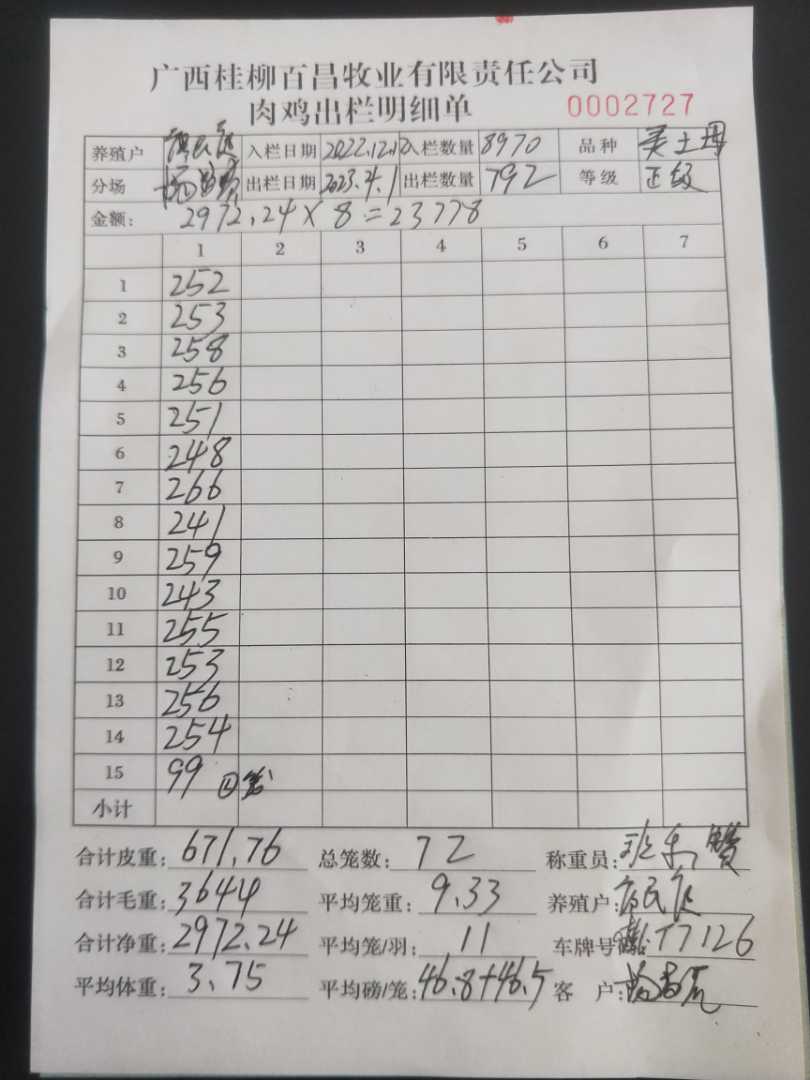 广西桂柳百昌牧业有限责任公司
肉鸡出栏明细单 0002727
养殖户 入栏日期 2022.12.12 入栏数量 8970 品种 美土母
分场 出栏日期 2023.4.1 出栏数量 792 等级 正级
金额: 2972.24×8=23778
1 2 3 4 5 6 7
1 252
2 253
3 258
4 256
5 251
6 248
7 266
8 241
9 259
10 243
11 255
12 253
13 256
14 254
15 99
小计
合计皮重: 671.76 总笼数: 72 称重员:
合计毛重: 3644 平均笼重: 9.33 养殖户:
合计净重: 2972.24 平均笼/羽: 11 车牌号: T7126
平均体重: 3.75 平均磅/笼: 46.8+46.5 客 户: